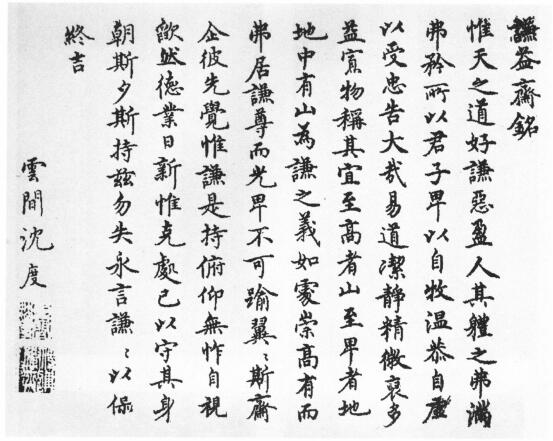 謙益齋銘
惟天之道好謙惡盈人其軆之弗滿
弗矜所以君子卑以自牧温恭自虛
以受忠告大哉易道潔靜精微裒多
益寡物稱其宜至高者山至卑者地
地中有山為謙之義如䝉崇高有而
弗居謙尊而光卑不可踰翼〻斯齋
企彼先覺惟謙是持俯仰無怍自視
歉然德業日新惟克處已以守其身
朝斯夕斯持兹勿失永言謙〻以保
終吉
雲間沈度